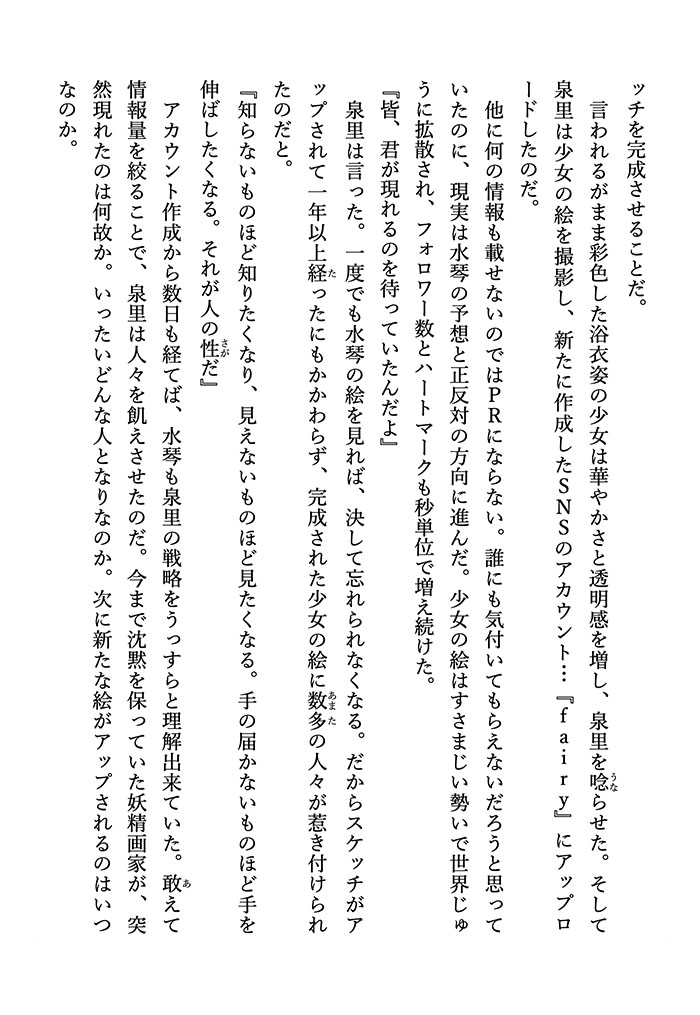 ッチを完成させることだ。
　言われるがまま彩色した浴衣姿の少女は華やかさと透明感を増し、泉里を唸らせた。そして
泉里は少女の絵を撮影し、新たに作成したSNSのアカウント…『fairy』にアップロ
ードしたのだ。
　他に何の情報も載せないのではPRにならない。誰にも気付いてもらえないだろうと思って
いたのに、現実は水琴の予想と正反対の方向に進んだ。少女の絵はすさまじい勢いで世界じゅ
うに拡散され、フォロワー数とハートマークも秒単位で増え続けた。
『皆、君が現れるのを待っていたんだよ』
　泉里は言った。一度でも水琴の絵を見れば、決して忘れられなくなる。だからスケッチがア
ップされて一年以上経ったにもかかわらず、完成された少女の絵に数多の人々が惹き付けられ
たのだと。
『知らないものほど知りたくなり、見えないものほど見たくなる。手の届かないものほど手を
伸ばしたくなる。それが人の性だ』
　アカウント作成から数日も経てば、水琴も泉里の戦略をうっすらと理解出来ていた。敢えて
情報量を絞ることで、泉里は人々を飢えさせたのだ。今まで沈黙を保っていた妖精画家が、突
然現れたのは何故か。いったいどんな人となりなのか。次に新たな絵がアップされるのはいつ
なのか。